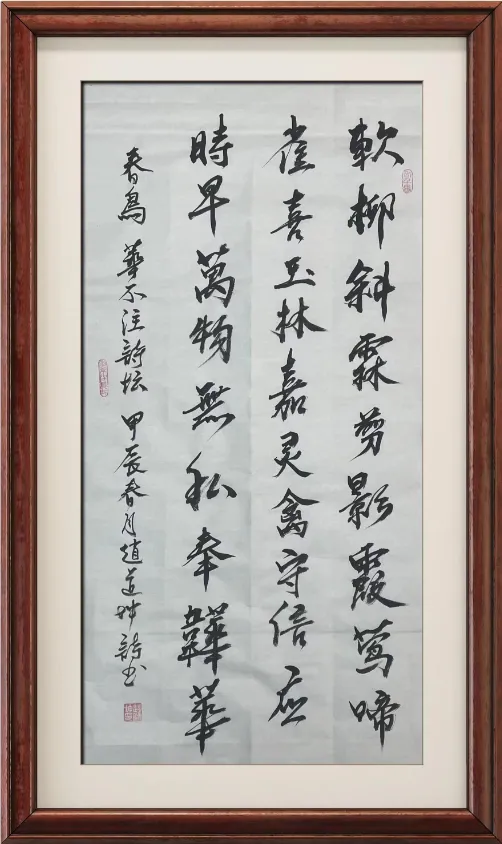 軟柳斜霖剪影霞莺啼
雀喜玉林嘉灵禽守信应
時早萬物無私奉韡華
春鳥 華不注詩坛 甲辰春月趙道坤詩书